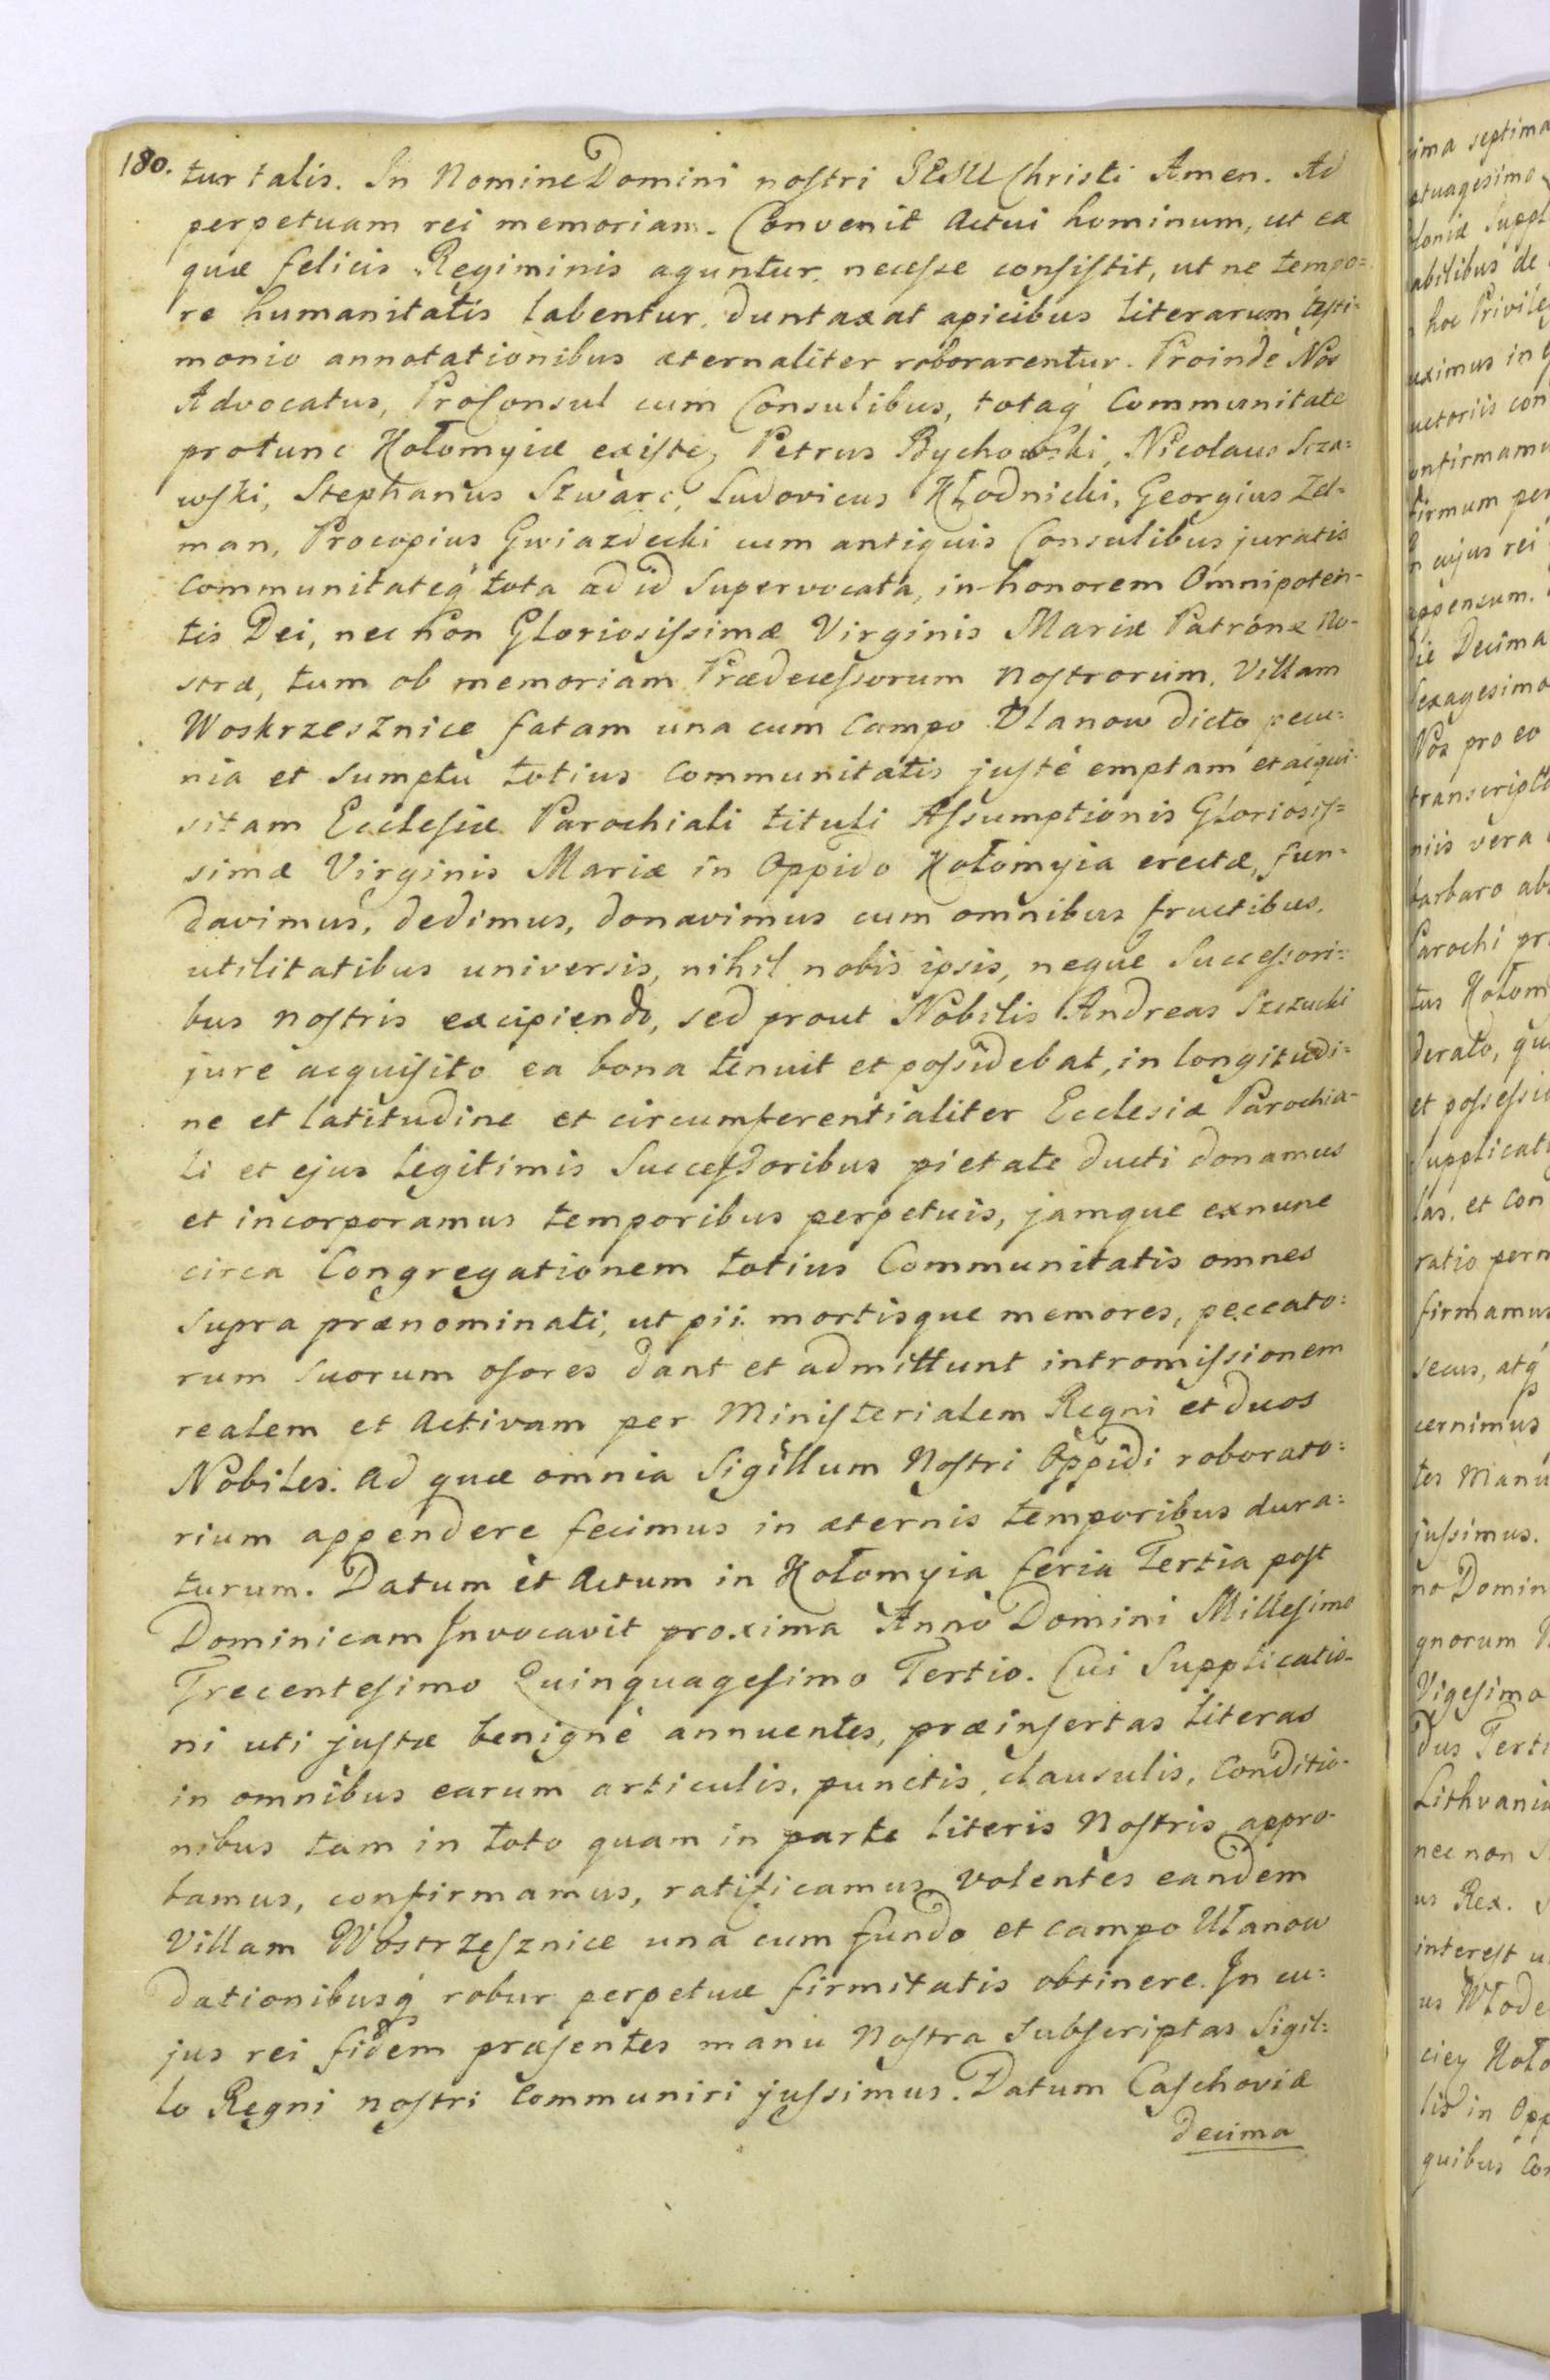 180.
tur talis. In Nomine Domini nostri JESU Christi Amen. Ad
perpetuam rei memoriam. Convenit Actui hominum, ut ea
quæ felicis Regiminis aguntur, necesse consistit, ut ne tempo=
re humanitatis labentur, duntaxat apicibus literarum testi=
monio annotationibus æternaliter roborarentur. Proinde Nos
Advocatus, Proconsul cum Consulibus, totaq́ Communitate
protunc Kołomyiæ existe, Petrus Bychowski, Nicolaus Scza=
wski, Stephanus Szwarc, Ludovicus Kłodnicki, Georgius Zel=
man, Procopius Gwiazdecki cum antiquis Consulibus juratis
Communitateq́ tota ad id Supervocata, in honorem Omnipoten-
tis Dei, nec non Gloriosissimæ Virginis Mariæ Patronæ No-
stræ, tum ob memoriam Prædecessorum nostrorum, Villam
Woskrzesznice fatam una cum Campo Ulanow dicto, pecu=
nia et Sumptu totius Communitatis justè emptam et acqui-
sitam Ecclesiæ Parochiali tituli Assumptionis Gloriosis=
simæ Virginis Mariæ in Oppido Kołomyia erectæ, fun=
davimus, dedimus, donavimus cum omnibus fructibus,
utilitatibus universis, nihil nobis ipsis, neque Successori=
bus nostris excipiendo, sed prout Nobilis Andreas Szczucki
jure acquisito ea bona tenuit et possidebat, in longitudi=
ne et latitudine et circumferentialiter Ecclesiæ Parochia-
li et ejus legitimis Successoribus pietate ducti donamus
et incorporamus temporibus perpetuis, jamque exnunc
circa Congregationem totius Communitatis omnes
supra prænominati, ut pii mortisque memores, peccato=
rum suorum osores dant et admittunt intromissionem
realem et Activam per Ministerialem Regni et duos
Nobiles. Ad quæ omnia Sigillum Nostri Oppidi roborato=
rium appendere fecimus in æternis temporibus dura=
turum. Datum et Actum in Kołomyia feria Tertia post
Dominicam Invocavit proxima Anno Domini Millesimo
Trecentesimo Quinquagesimo Tertio. Cui Supplicatio-
ni uti justæ benignè annuentes, præinsertas literas
in omnibus earum articulis, punctis, clausulis, Conditio-
nibus tam in toto quam in parte literis Nostris appro-
bamus, confirmamus, ratificamus volentes eandem
Villam Wostrzesznice una cum fundo et campo Ulanow
dationibusq́ robur perpetuæ firmitatis obtinere. In cu=
jus rei fidem præsentes manu Nostra subscriptas Sigil=
lo Regni nostri Communiri jussimus. Datum Caschoviæ
decima
ima septima
ptuagesimo
loniæ Suppl
abilibus de
hoc Privile
uximus in
uctoriis con
onfirmamu
firmum per
n cujus rei
appensum.
die Decima
sexagesimo
Nos pro eo
transcript
niis vera
barbaro ab
Parochi pr
tus Kołom
derato, qu
et possessi
supplicat
las, et Con
ratio perm
firmamus
secus, atq́
cernimus
tes Manu
jussimus.
no Domin
gnorum
Vigesimo
dus Terti
Lithvaniæ
nec non
us Rex.
interest
us Włode
ciey Koło
lis in Opp
quibus Con